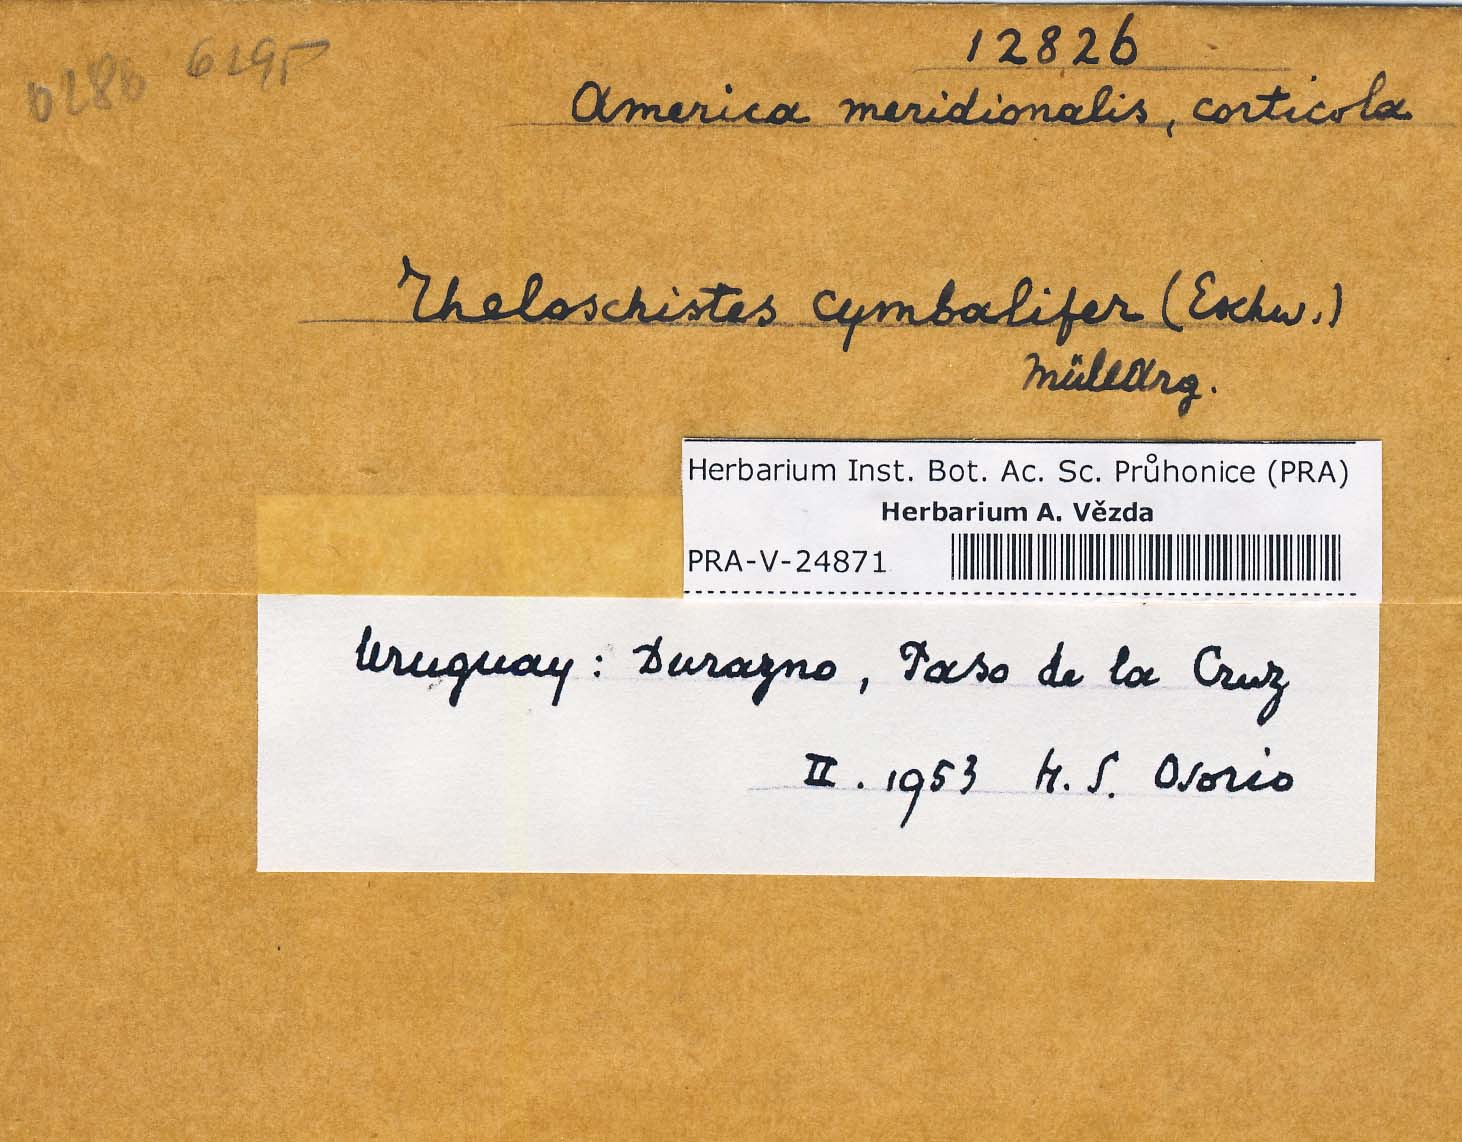 12826
America meridionalis, corticola
Theloschistes cymbalifer (Eschw.)
Müll Arg.
Herbarium Inst. Bot. Ac. Sc. Průhonice (PRA)
Herbarium A. Vězda
PRA-V-24871
Uruguay: Durazno, Paso de la Cruz
II. 1953 H. S. Osorio